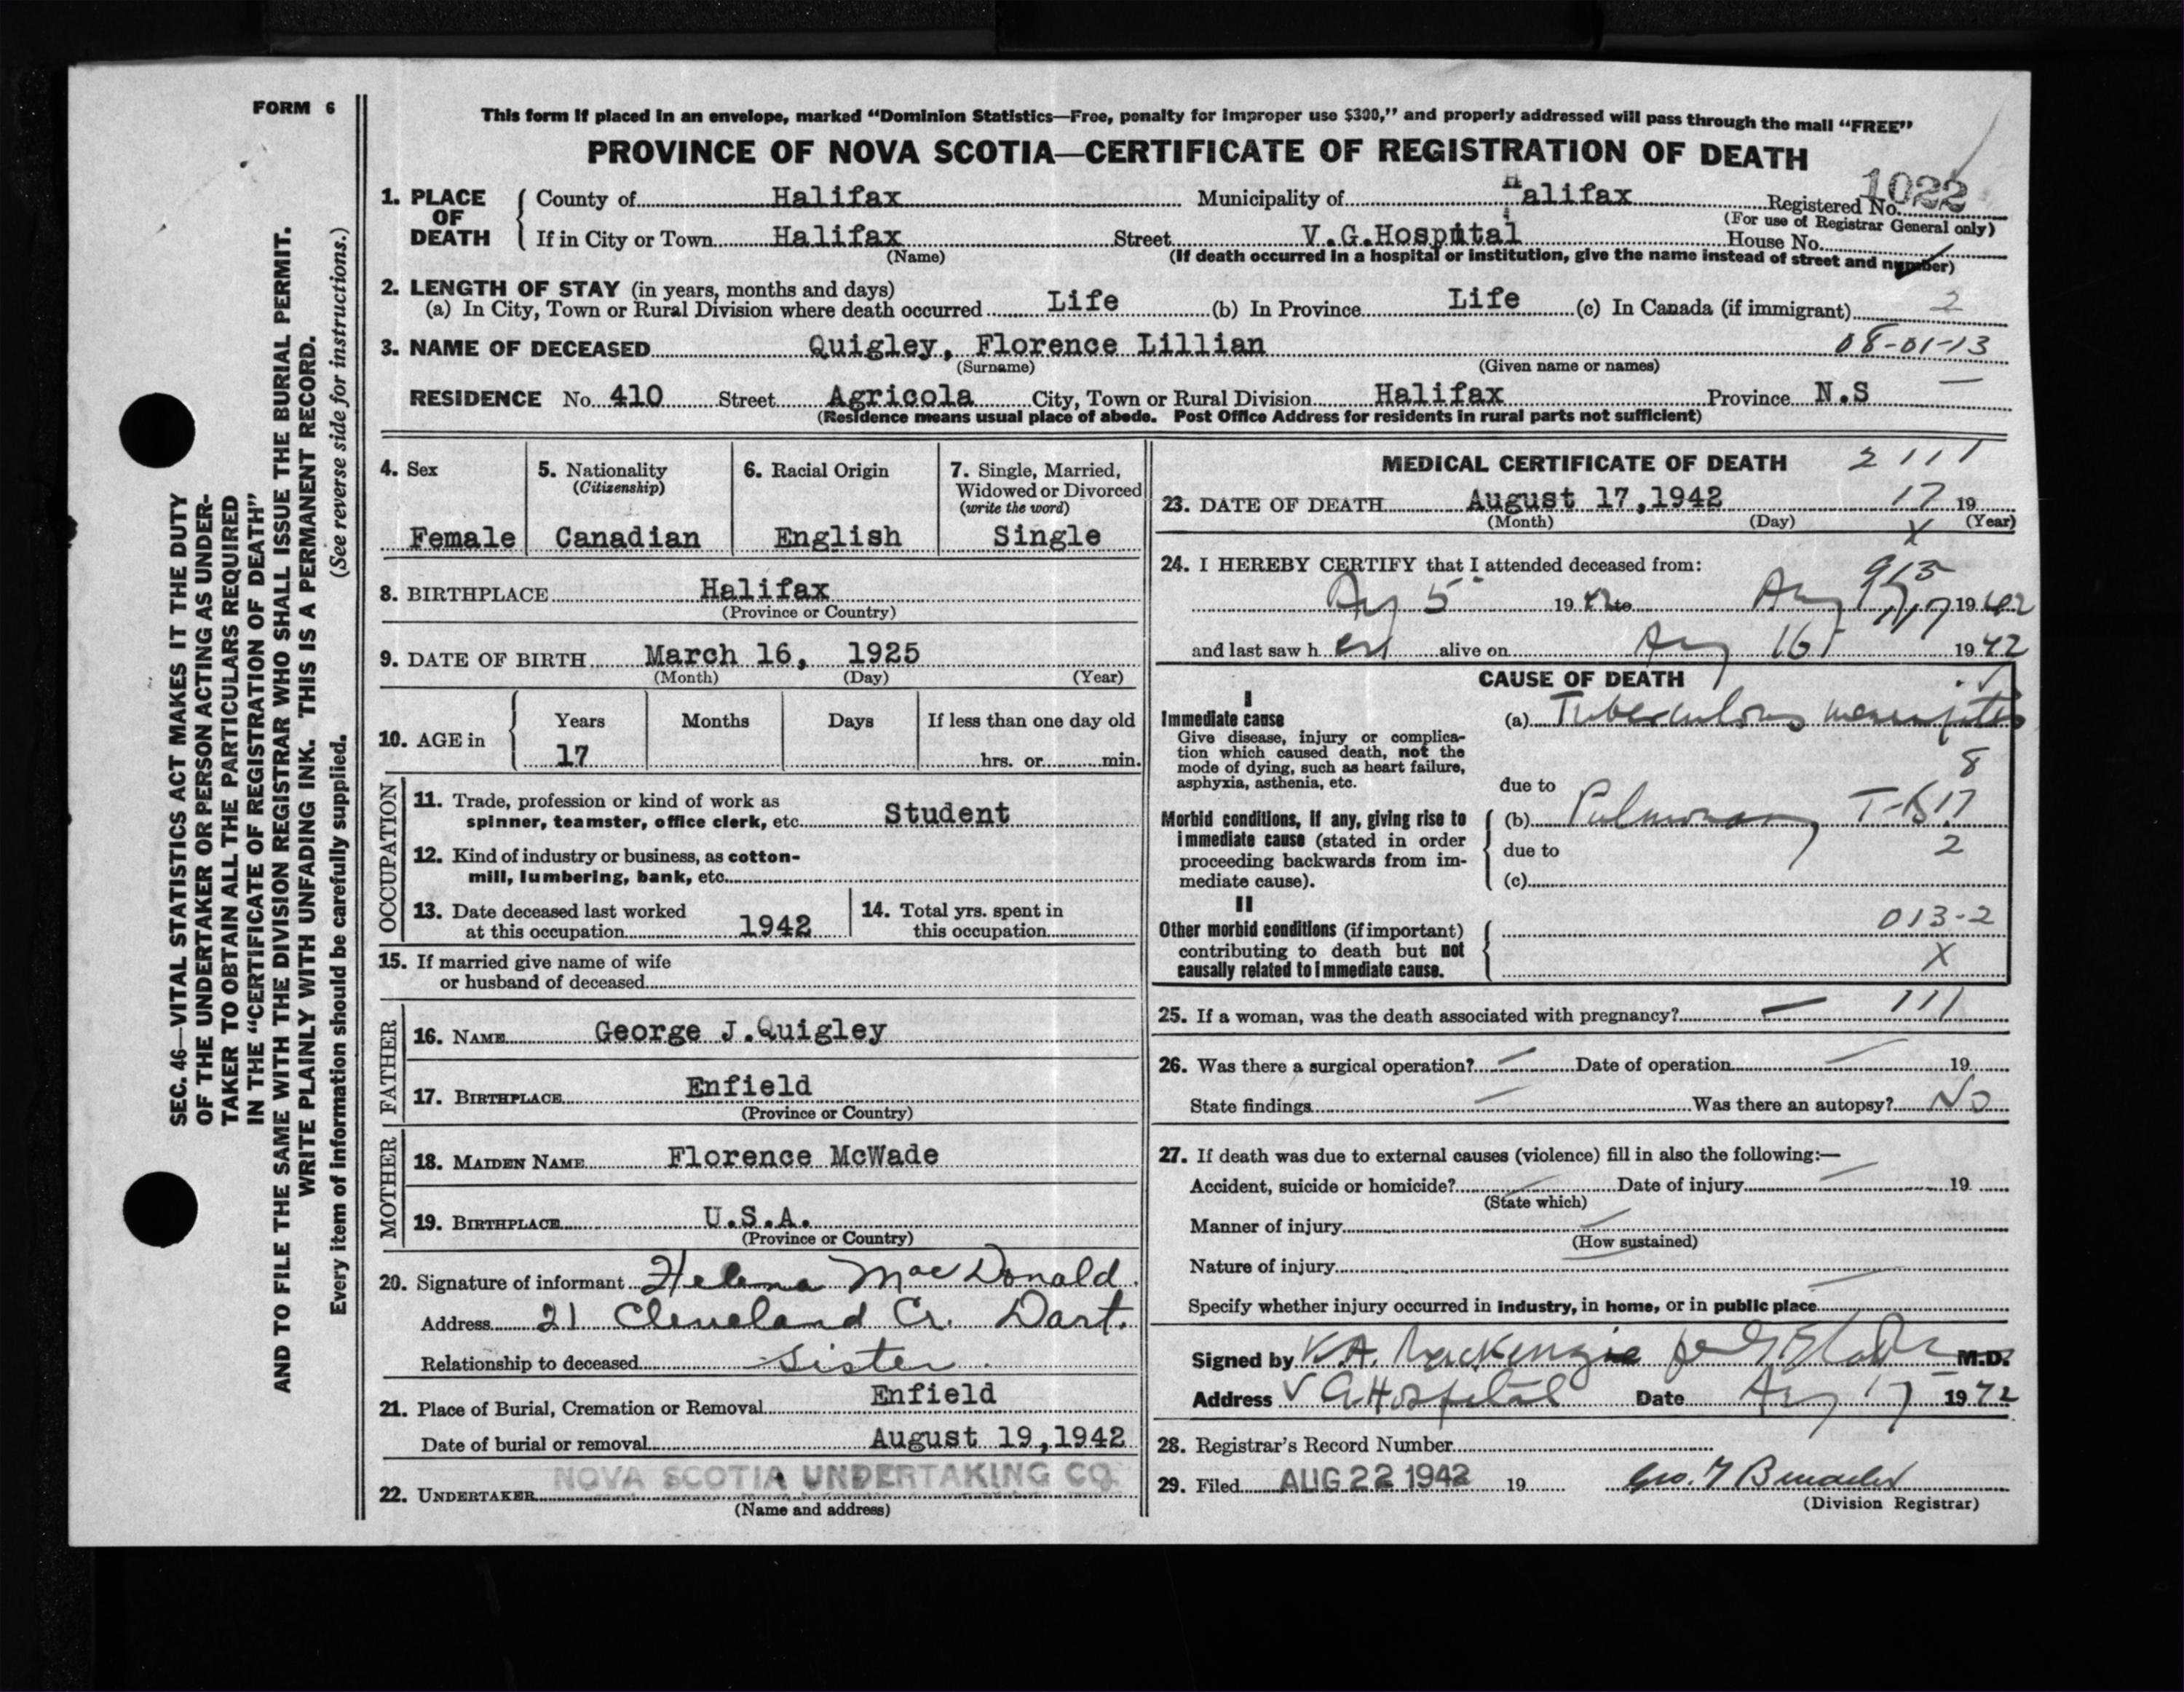 FORM 6
This form if placed in an envelope, marked "Dominion Statistics—Free, penalty for improper use $300," and properly addressed will pass through the mail "FREE"
PROVINCE OF NOVA SCOTIA—CERTIFICATE OF REGISTRATION OF DEATH
1022
1. PLACE OF DEATH
County of Halifax Municipality of Halifax Registered No.
(For use of Registrar General only)
If in City or Town Halifax Street V.G.Hospital House No.
(Name) (If death occurred in a hospital or institution, give the name instead of street and number)
2. LENGTH OF STAY (in years, months and days)
(a) In City, Town or Rural Division where death occurred Life (b) In Province Life (c) In Canada (if immigrant) 2
3. NAME OF DECEASED Quigley, Florence Lillian 08-01-13
(Surname) (Given name or names)
RESIDENCE No. 410 Street Agricola City, Town or Rural Division Halifax Province N.S
(Residence means usual place of abode. Post Office Address for residents in rural parts not sufficient)
4. Sex
Female
5. Nationality
(Citizenship)
Canadian
6. Racial Origin
English
7. Single, Married,
Widowed or Divorced
(write the word)
Single
8. BIRTHPLACE Halifax
(Province or Country)
9. DATE OF BIRTH March 16, 1925
(Month) (Day) (Year)
10. AGE in Years Months Days If less than one day old
17 hrs. or min.
OCCUPATION
11. Trade, profession or kind of work as
spinner, teamster, office clerk, etc. Student
12. Kind of industry or business, as cotton-
mill, lumbering, bank, etc.
13. Date deceased last worked
at this occupation 1942
14. Total yrs. spent in
this occupation
15. If married give name of wife
or husband of deceased
FATHER
16. NAME George J.Quigley
17. BIRTHPLACE Enfield
(Province or Country)
MOTHER
18. MAIDEN NAME Florence McWade
19. BIRTHPLACE U.S.A.
(Province or Country)
20. Signature of informant Helena MacDonald
Address 21 Cleveland Cr. Dart.
Relationship to deceased Sister
21. Place of Burial, Cremation or Removal Enfield
Date of burial or removal August 19,1942
NOVA SCOTIA UNDERTAKING CO.
22. UNDERTAKER
(Name and address)
MEDICAL CERTIFICATE OF DEATH 2 111
23. DATE OF DEATH August 17,1942 17 19
(Month) (Day) (Year)
X
24. I HEREBY CERTIFY that I attended deceased from:
Aug 5 1942 to Aug 17 1942
and last saw her alive on Aug 16 1942
CAUSE OF DEATH
I
Immediate cause
Give disease, injury or complica-
tion which caused death, not the
mode of dying, such as heart failure,
asphyxia, asthenia, etc.
(a) Tuberculous meningitis
8
due to
Morbid conditions, if any, giving rise to
immediate cause (stated in order
proceeding backwards from im-
mediate cause).
(b) Pulmonary T-B 17
due to 2
(c)
II
Other morbid conditions (if important)
contributing to death but not
causally related to immediate cause.
013-2
X
111
25. If a woman, was the death associated with pregnancy? —
26. Was there a surgical operation? — Date of operation — 19
State findings — Was there an autopsy? No
27. If death was due to external causes (violence) fill in also the following:—
Accident, suicide or homicide? Date of injury 19
(State which)
Manner of injury
(How sustained)
Nature of injury
Specify whether injury occurred in industry, in home, or in public place
Signed by K.A. MacKenzie per M.D.
Address V G Hospital Date Aug 17 1942
28. Registrar's Record Number
29. Filed AUG 22 1942 19
(Division Registrar)
SEC. 46—VITAL STATISTICS ACT MAKES IT THE DUTY
OF THE UNDERTAKER OR PERSON ACTING AS UNDER-
TAKER TO OBTAIN ALL THE PARTICULARS REQUIRED
IN THE "CERTIFICATE OF REGISTRATION OF DEATH"
AND TO FILE THE SAME WITH THE DIVISION REGISTRAR WHO SHALL ISSUE THE BURIAL PERMIT.
WRITE PLAINLY WITH UNFADING INK. THIS IS A PERMANENT RECORD.
Every item of information should be carefully supplied. (See reverse side for instructions.)